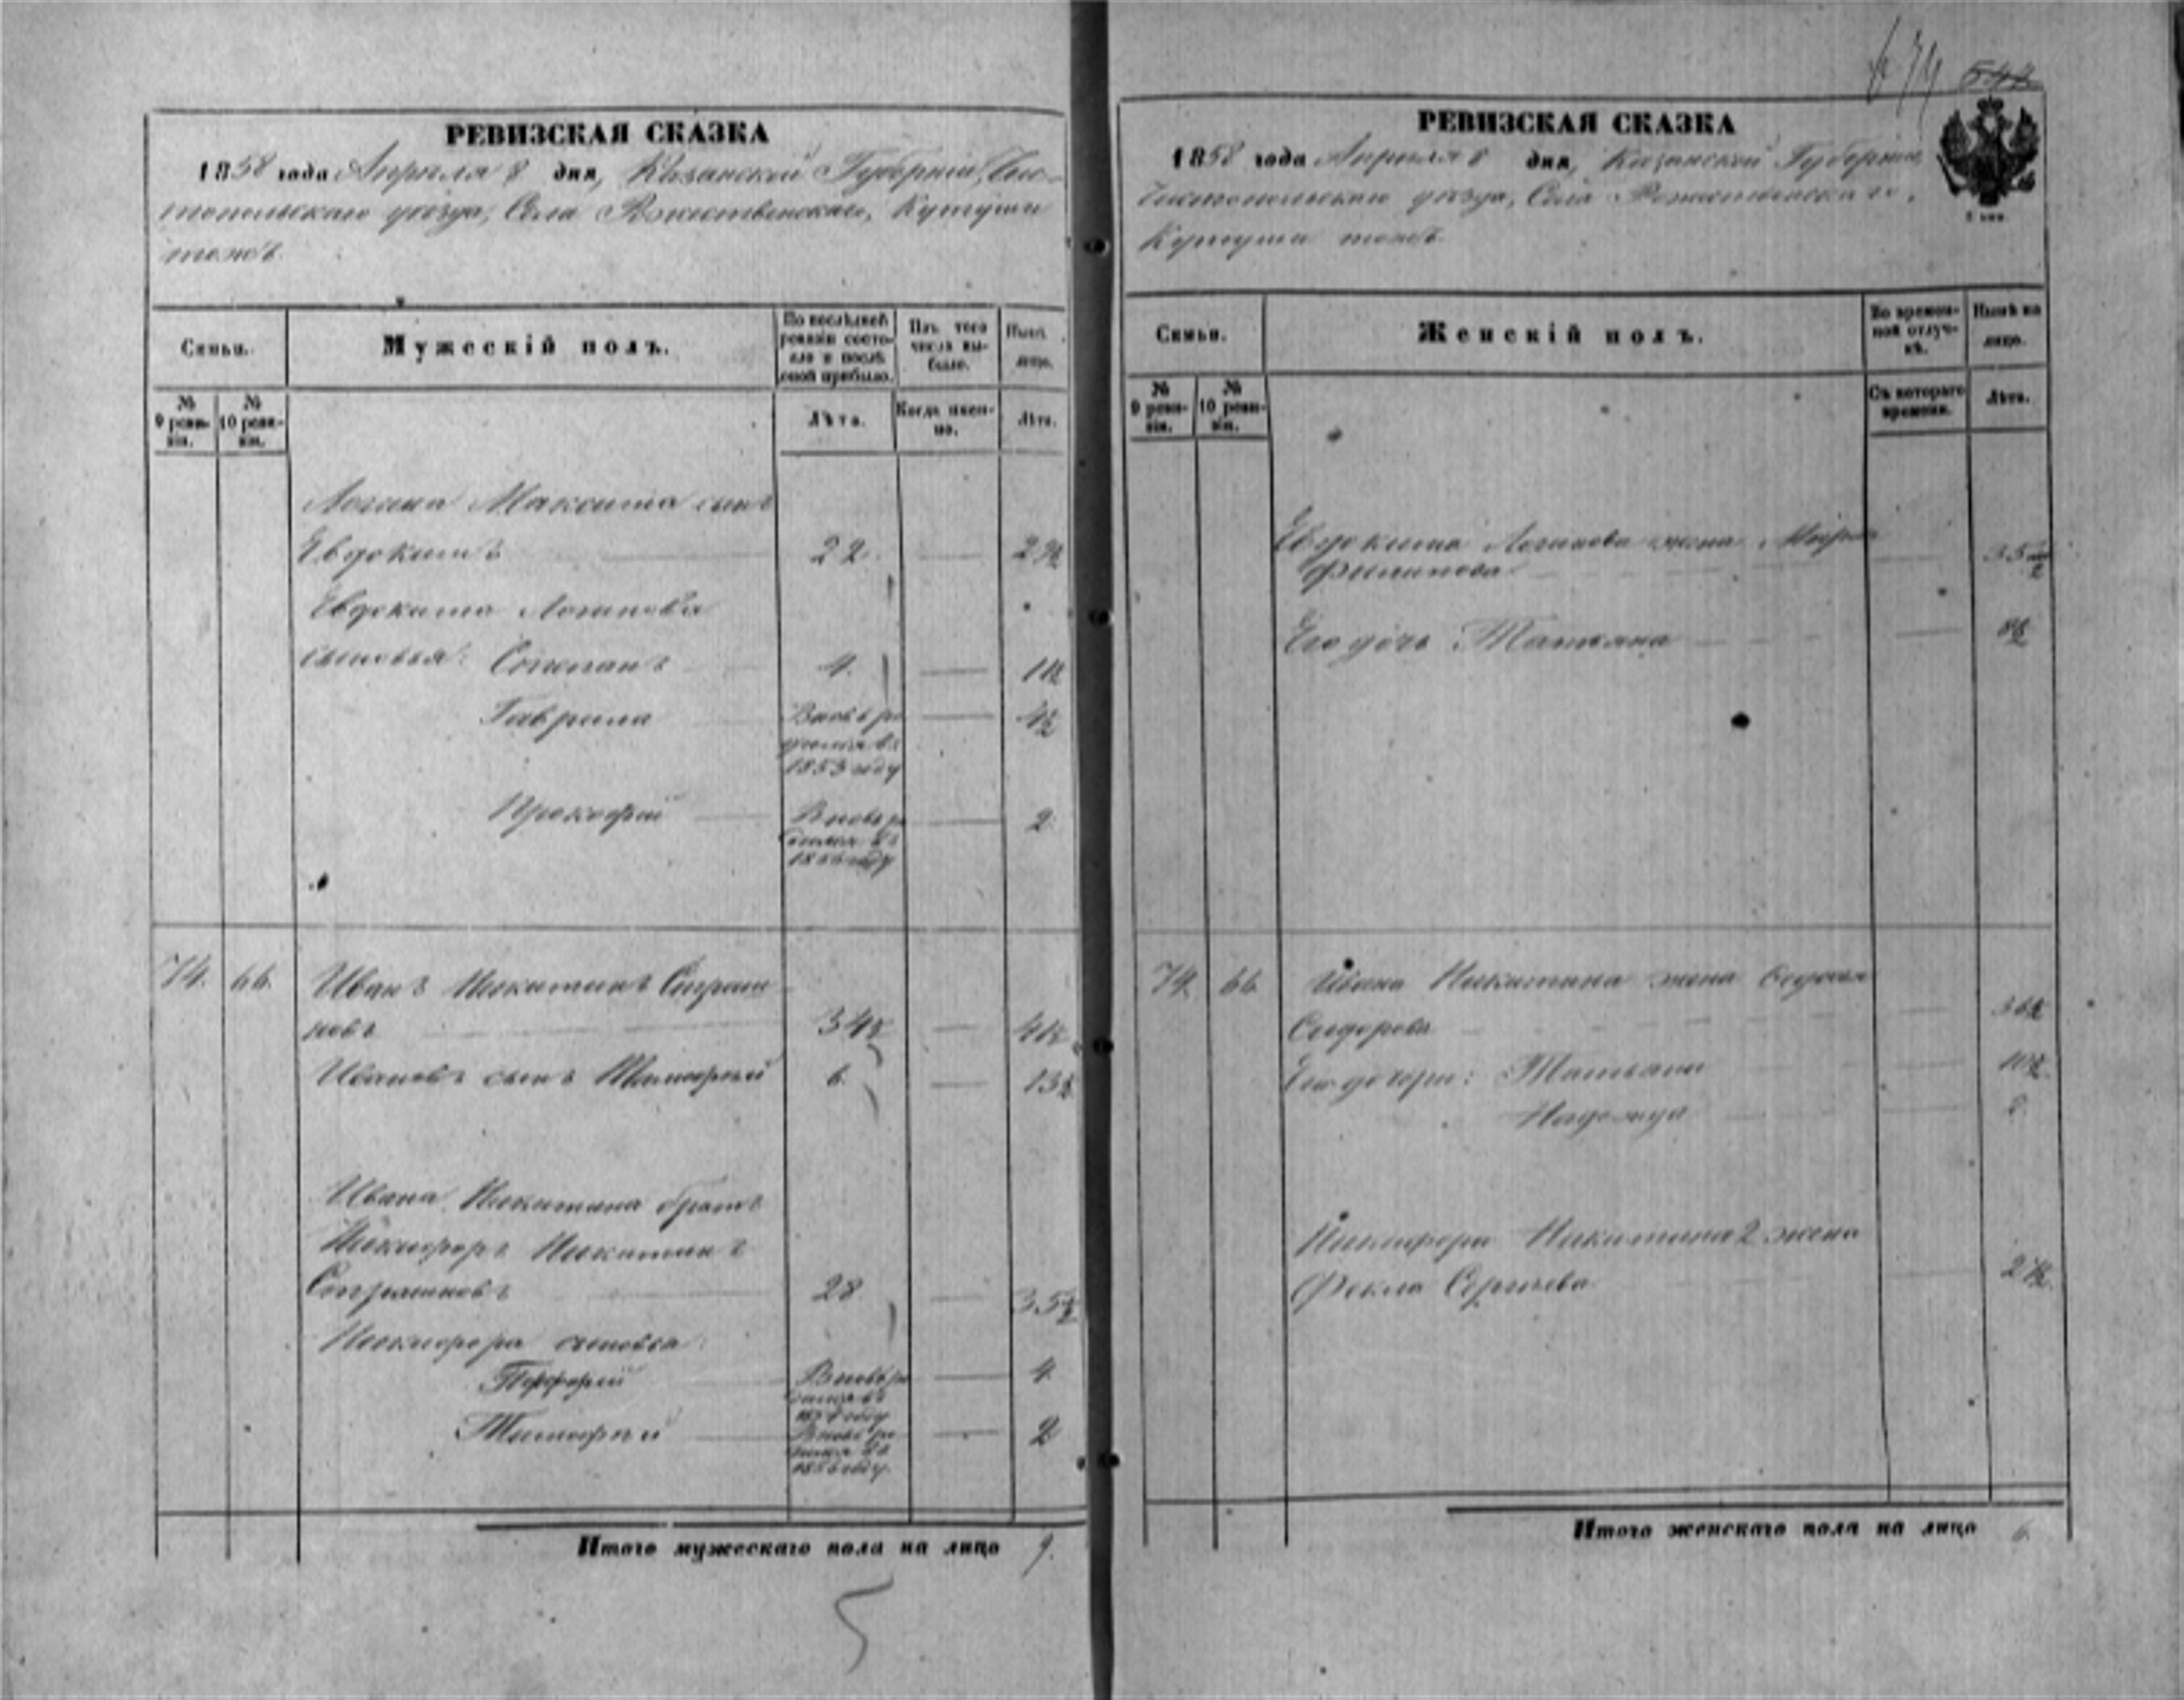 674 542
РЕВИЗСКАЯ СКАЗКА
1858 года Апреля 8 дня, Казанской Губерніи, Чис-
топольскаго уѣзда, Села Рожественскаго, Кутуши
тожъ.
Семьи.
Мужескій полъ.
По послѣдней ревизіи состояло и послѣ оной прибыло.
Изъ того числа выбыло.
Нынѣ на лицо.
№ 9 ревизіи.
№ 10 ревизіи.
Лѣта.
Когда именно.
Лѣта.
Логина Максима сынъ
Евдокимъ 22. 29½
Евдокима Логинова
сыновья: Степанъ 4. 11½
Гаврила Вновь ро 4½
дился въ
1853 году
Прокофій Вновь ро 2.
дился въ
1856 году
74. 66. Иванъ Никитинъ Страш
новъ 34½ 41½
Ивановъ сынъ Тимофей 6. 13½
Ивана Никитина братъ
Никифоръ Никитинъ
Страшновъ 28 35½
Никифора сыновья:
Вновь ро 4.
дился въ
году
Тимофей Вновь ро 2
дился въ
1856 году.
Итого мужескаго пола на лицо 9.
РЕВИЗСКАЯ СКАЗКА
1858 года Апреля 8 дня, Казанской Губерніи,
Чистопольскаго уѣзда, Села Рожественскаго,
Кутуши тожъ.
Семьи.
Женскій полъ.
Во временной отлучкѣ.
Нынѣ на лицо.
№ 9 ревизіи.
№ 10 ревизіи.
Съ котораго времени.
Лѣта.
Евдокима Логинова жена
Филипова 35
Его дочь Татьяна 8½
74. 66. Ивана Никитина жена Федосья
Сидорова 36½
Его дочери: Татьяна 10½
Надежда
Никифора Никитина 2 жена
Фекла Сергѣева
Итого женскаго пола на лицо 6.